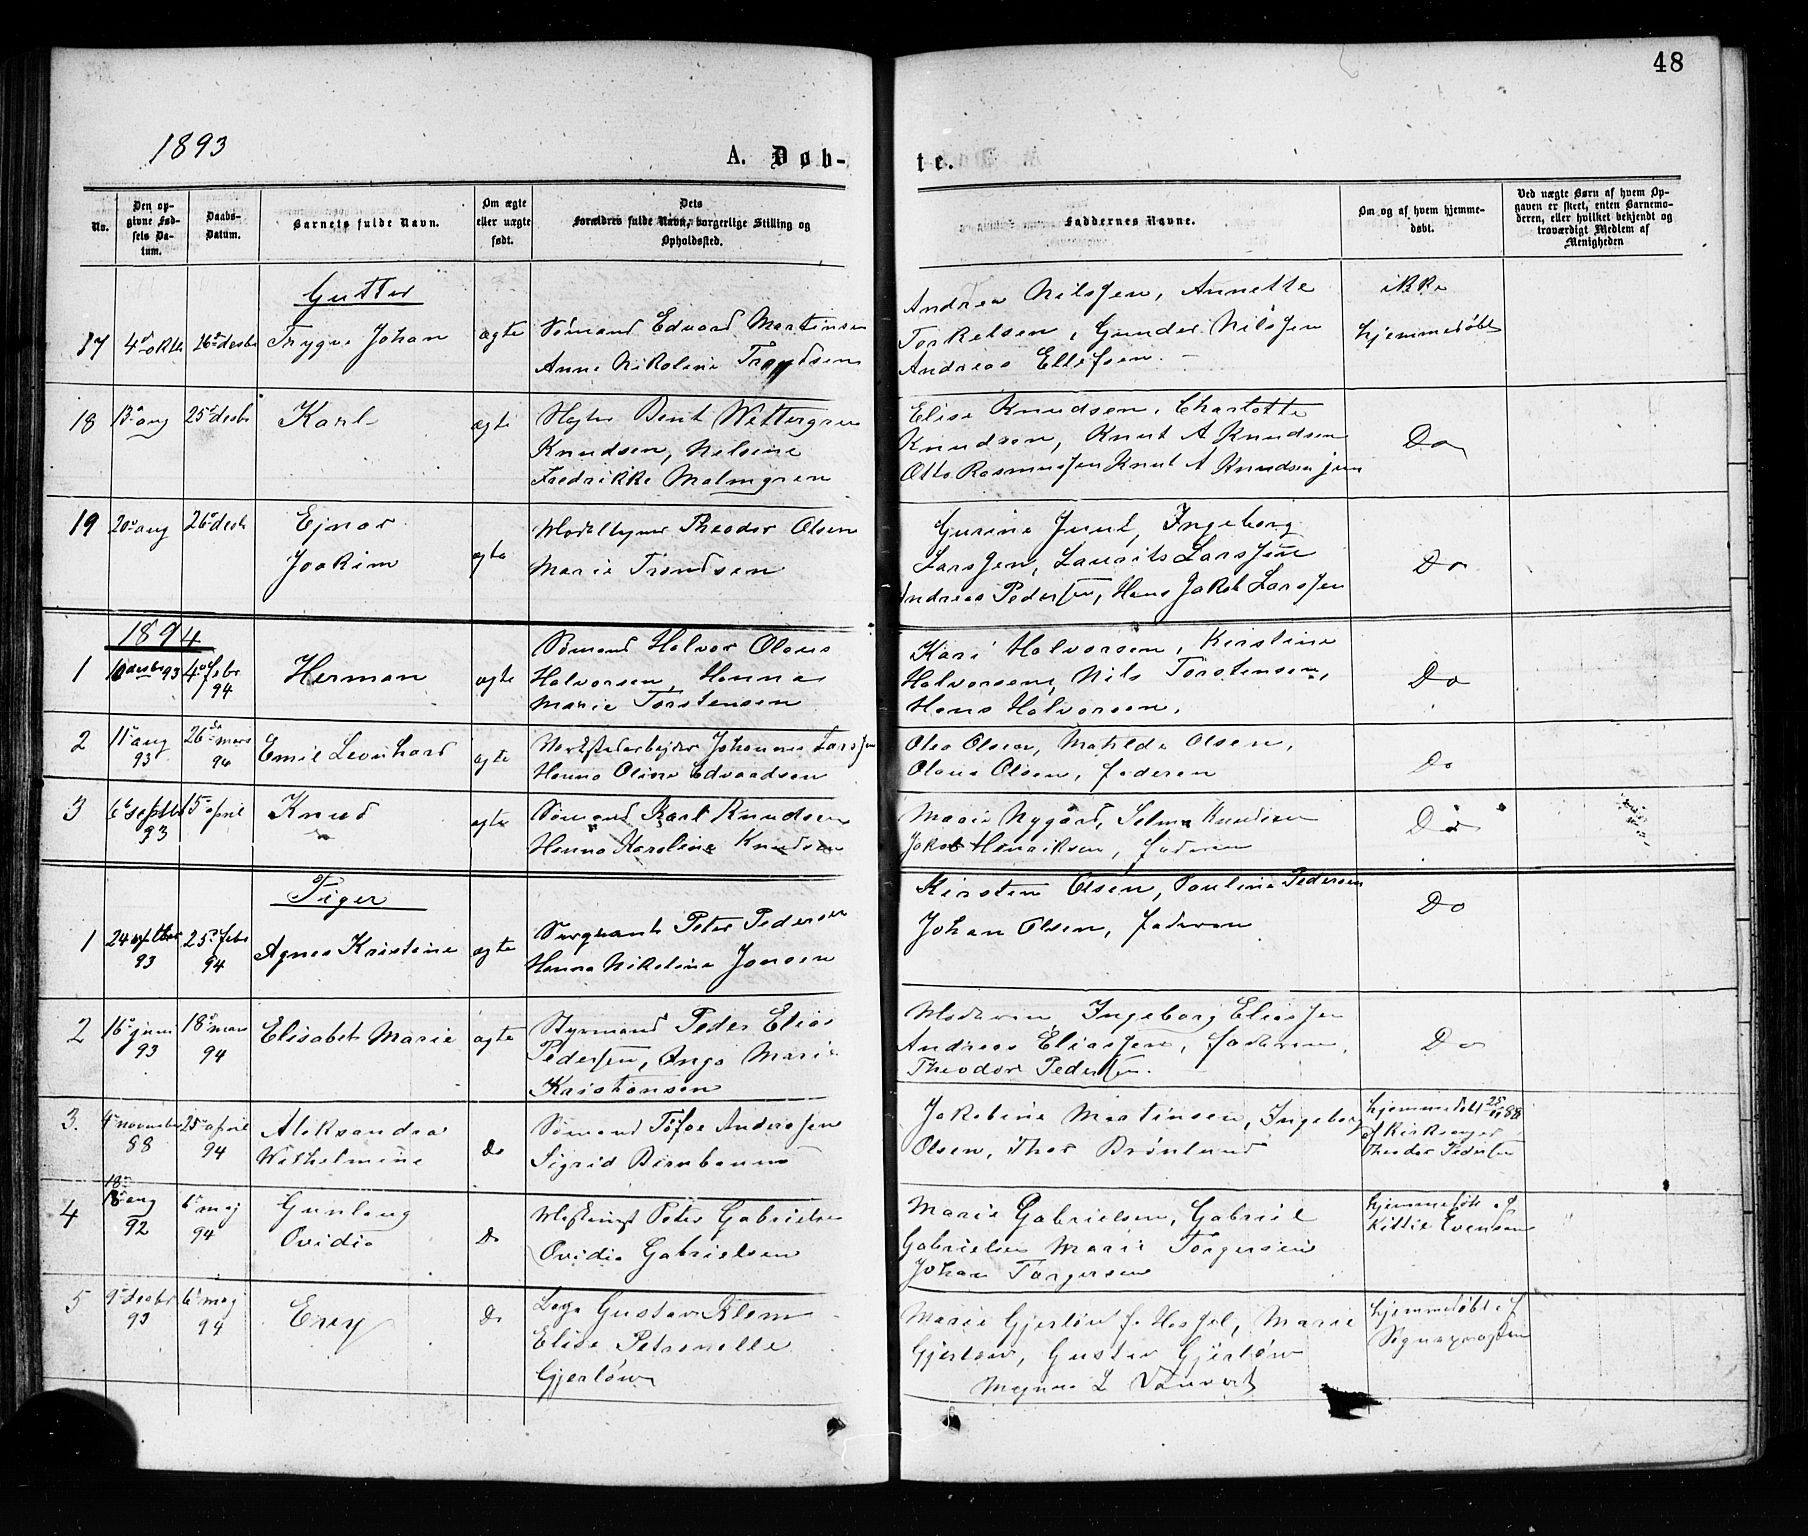 48
1893
A. Døb-
te.
No.
Den op-
givne Fød-
sels Da-
tum.
Daabs-
Datum.
Barnets fulde Navn.
Om ægte
eller uægte
født.
Dets
Forældres fulde Navn, borgerlige Stilling og
Opholdssted.
Faddernes Navne.
Om og af hvem hjemme-
døbt.
Ved uægte Børn af hvem Op-
gaven er skeet, enten Barnemo-
deren, eller hvilket bekjendt og
troværdigt Medlem af
Menigheden
Gutter
17 4de okt 26de desbr Trygve Johan ægte Sømand Edvard Martinsen
Anne Nikoline Trondsen
Andrea Nilssen, Annette
Torkelsen, Gunder Nilssen
Andreas Ellefsen.
ikke
hjemmedøbt
18 13de aug 25de desbr Karl ægte Bent Wettergren
Knudsen, Nilsine
Fredrikke Malmgren
Elise Knudsen, Charlotte
Knudsen, Knut A Knudsen
Otto Rasmussen Knut A Knudsen jun
Do
19 20de aug 26de desb Ejnar
Joakim
ægte Theodor Olsen
Marie Trondsen
Gurine Juul, Ingeborg
Larssen, Laurits Larssen
Andreas Pedersen, Hans Jakob Larssen
Do
1894
1 10 desbr 93 4de febr
94
Herman ægte Sømand Halvor Olaus
Halvorsen, Hanna
Marie Torstensen
Kari Halvorsen, Kirstine
Halvorsen, Nils Torstensen,
Hans Halvorsen.
Do
2 11te aug
93
26de mars
94
Emil Leonhard ægte Verkstedarbejder Johannes Larssen
Hanna Oline Edvardsen
Olea Olsen, Matilde Olsen,
Olaus Olsen, faderen
Do
3 6te septbr
93
15de april Knud ægte Sømand Karl Knudsen
Hanna Karoline Knudsen
Marie Nygård, Selma Knudsen
Jakob Henriksen, faderen
Do
Piger
1 24 septbr
93
25de febr
94
Agnes Kristine ægte Sergeant Peter Pedersen
Hanna Nikoline Jensen
Kirsten Olsen, Pauline Pedersen
Johan Olsen, faderen
Do
2 16de juni
93
18de mars
94
Elisabet Marie ægte Styrmand Peder Elias
Pedersen, Inga Marie
Kristensen
Moderen Ingeborg Eliassen
Andreas Eliassen, faderen,
Theodor Pedersen.
Do
3. 4de november
88
25de april
94
Aleksandra
Wilhelmine
Do Sømand Anderssen
Sigrid Birnbaum
Jakobine Martinsen, Ingeborg
Olsen, Thor Brønlund
hjemmedøbt 25/11 88
af Kirkesanger
Theodor Pedersen
4 18de aug
92
6te maj
94
Gunlaug
Ovidia
Do Peter Gabrielsen
Ovidia Gabrielsen
Marie Gabrielsen, Gabriel
Gabrielsen Marie Torgersen
Johan Torgersen
hjemmedøbt af
Kittil Evensen
5 9de desbr
93
6te maj
94
Do Gustav Klem
Elise Petronelle
Gjerløw
Marie Gjerløw f. Marie
Gjerløw, Gustav Gjerløw
Magnus L
hjemmedøbt af
Sognepresten